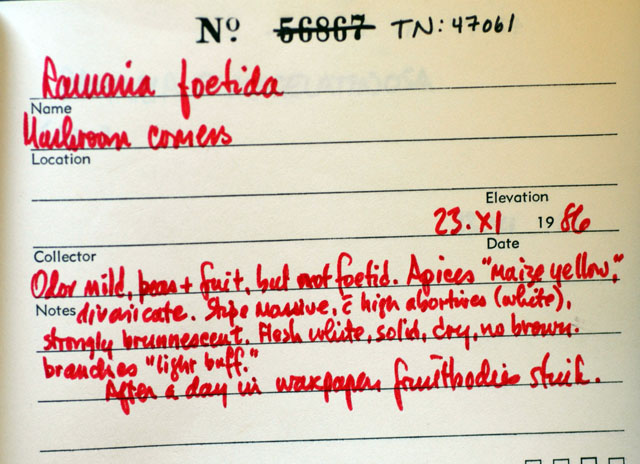 Nº 56867 TN: 47061
Ramaria foetida
Name
Mushroom corners
Location
Elevation
23. XI 19 86
Collector Date
Odor mild, beas + fruit, but not foetid. Apices "maize yellow,"
Notes divaricate. Stipe massive, c̄ high abortives (white),
strongly brunnescent. Flesh white, solid, dry, no brown.
branches "light buff."
After a day in waxpaper, fruitbodies stink.